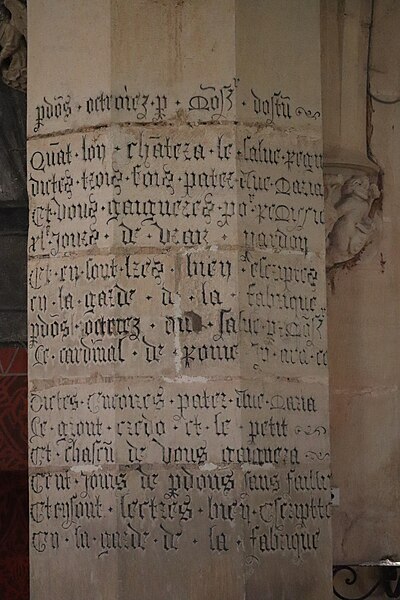 pdōs · octroiez · p · Mōsʳ · dostū
Quāt · lōn · chātera · le · salve · regī
Dictes · trois · fois · pater · Ave · Maria
Et · vous · gaigneres · po · 
xl · jours · de · vray · pardon
Et · en · sont · lres · bien · escriptes
en · la · garde · de · la · fabrique
pdōs · octroiez · au · salve · p · Mōsʳ
Le · cardinal · de · Rome
Dictes · encores · pater · Ave · Maria
Le · grant · credo · et · le · petit
Et · chascū · de · vous · gaignera
Cent · jours · de · pdons · sans · faillir
Et en sont · lectres · bien · escriptes
En · la · garde · de · la · fabrique